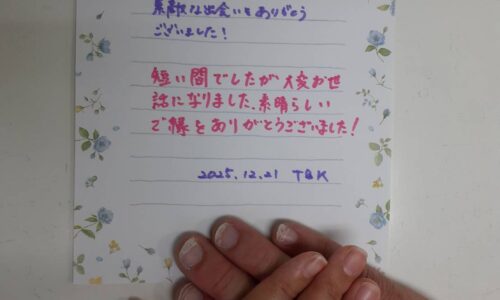 素敵な出会いをありがとう
ございました!
短い間でしたが大変お世
話になりました、素晴らしい
ご縁をありがとうございました!
2025.12.21 T&K